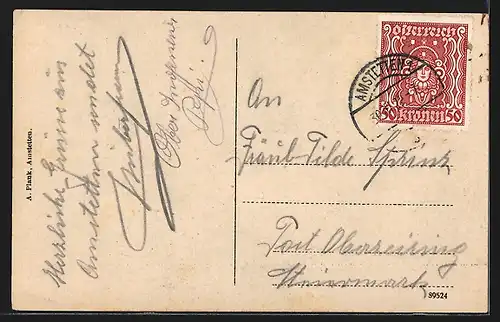 Herzliche Grüsse aus
Amstetten sendet
Ober
Pepi.
A. Plank, Amstetten.
Österreich
50 Kronen 50
AMSTETTEN
An
Fräul. Tilde
Post Oberzeiring
Steiermark
89524